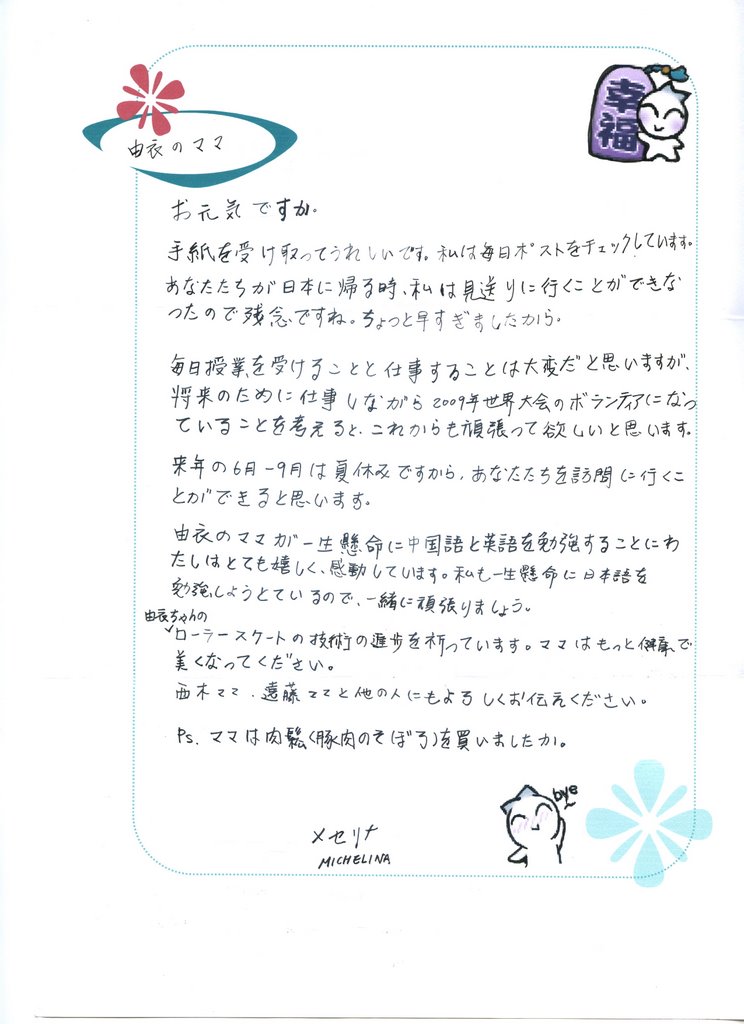 幸福
由衣のママ
お元気ですか。
手紙を受け取ってうれしいです。私は毎日ポストをチェックしています。
あなたたちが日本に帰る時、私は見送りに行くことができな
ったので残念ですね。ちょっと早すぎましたから。
毎日授業を受けることと仕事することは大変だと思いますが、
将来のために仕事しながら2009年世界大会のボランティアになっ
ていることを考えると、これからも頑張って欲しいと思います。
来年の6月-9月は夏休みですから、あなたたちを訪問に行くこ
とができると思います。
由衣のママが一生懸命に中国語と英語を勉強することにわ
たしはとても嬉しく、感動しています。私も一生懸命に日本語を
勉強しようとているので、一緒に頑張りましょう。
由衣ちゃんの
ローラースケートの技術の進歩を祈っています。ママはもっと健康で
美くなってください。
西木ママ、遠藤ママと他の人にもよろしくお伝えください。
Ps、ママは肉鬆(豚肉のそぼろ)を買いましたか。
bye
メセリナ
MICHELINA